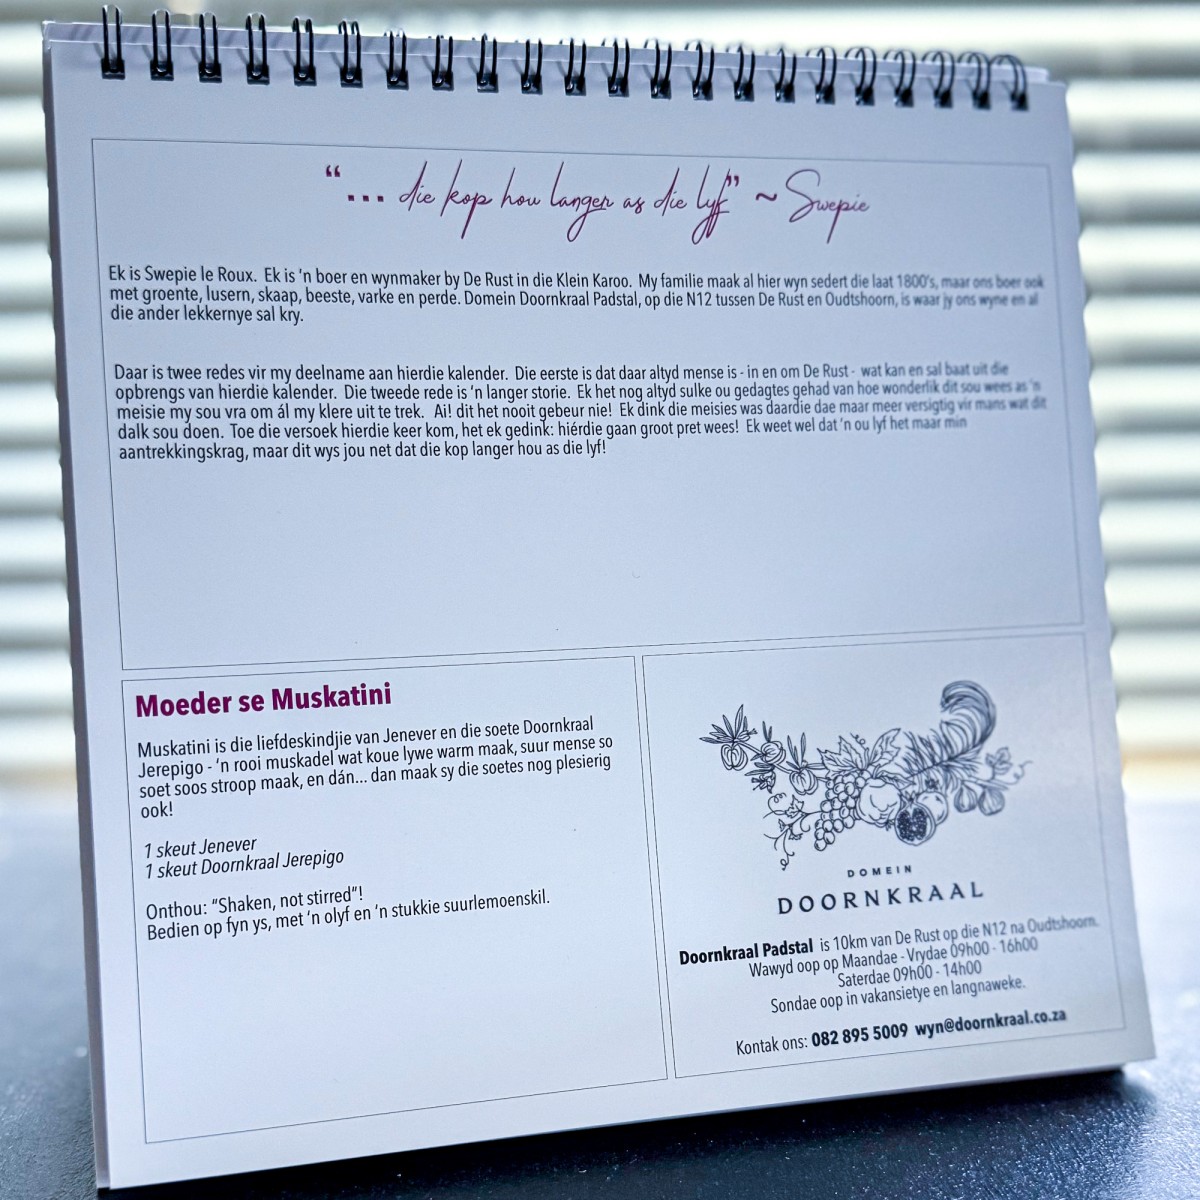 “... die kop hou langer as die lyf” ~ Swepie
Ek is Swepie le Roux. Ek is ‘n boer en wynmaker by De Rust in die Klein Karoo. My familie maak al hier wyn sedert die laat 1800’s, maar ons boer ook
met groente, lusern, skaap, beeste, varke en perde. Domein Doornkraal Padstal, op die N12 tussen De Rust en Oudtshoorn, is waar jy ons wyne en al
die ander lekkernye sal kry.
Daar is twee redes vir my deelname aan hierdie kalender. Die eerste is dat daar altyd mense is - in en om De Rust - wat kan en sal baat uit die
opbrengs van hierdie kalender. Die tweede rede is ‘n langer storie. Ek het nog altyd sulke ou gedagtes gehad van hoe wonderlik dit sou wees as ‘n
meisie my sou vra om ál my klere uit te trek. Ai! dit het nooit gebeur nie! Ek dink die meisies was daardie dae maar meer versigtig vir mans wat dit
dalk sou doen. Toe die versoek hierdie keer kom, het ek gedink: hiérdie gaan groot pret wees! Ek weet wel dat ‘n ou lyf het maar min
aantrekkingskrag, maar dit wys jou net dat die kop langer hou as die lyf!
Moeder se Muskatini
Muskatini is die liefdeskindjie van Jenever en die soete Doornkraal
Jerepigo - ‘n rooi muskadel wat koue lywe warm maak, suur mense so
soet soos stroop maak, en dán... dan maak sy die soetes nog plesierig
ook!
1 skeut Jenever
1 skeut Doornkraal Jerepigo
Onthou: “Shaken, not stirred”!
Bedien op fyn ys, met ‘n olyf en ‘n stukkie suurlemoenskil.
DOMEIN
DOORNKRAAL
Doornkraal Padstal is 10km van De Rust op die N12 na Oudtshoorn.
Wawyd oop op Maandae - Vrydae 09h00 - 16h00
Saterdae 09h00 - 14h00
Sondae oop in vakansietye en langnaweke.
Kontak ons: 082 895 5009 wyn@doornkraal.co.za